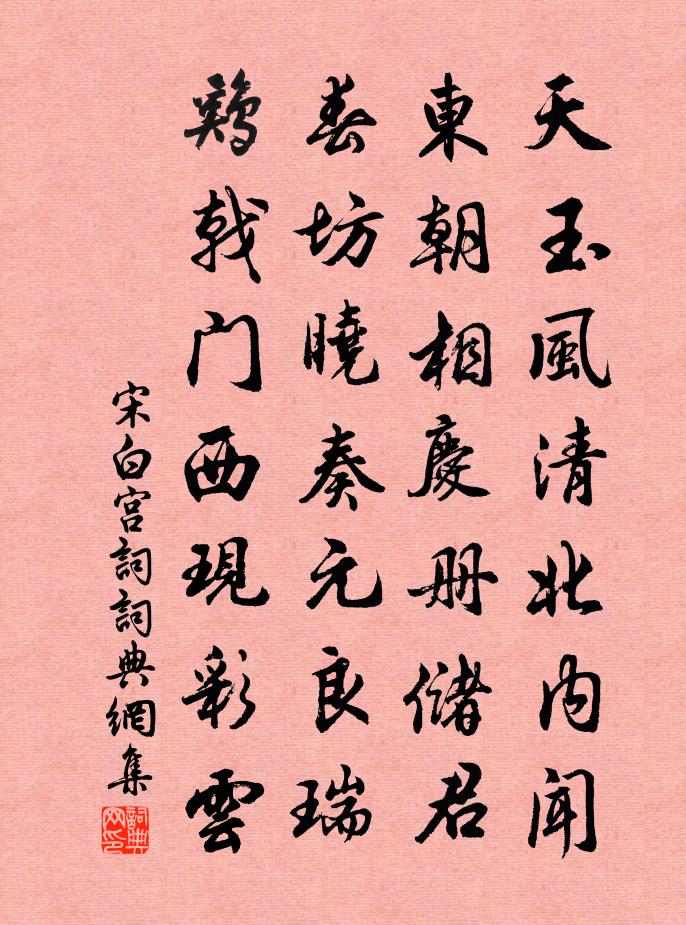 天玉風清北內聞
東朝相慶册儲君
春坊曉奏元良瑞
鷄戟門西現彩雲
宋白宫詞詞典網集
詞典网印